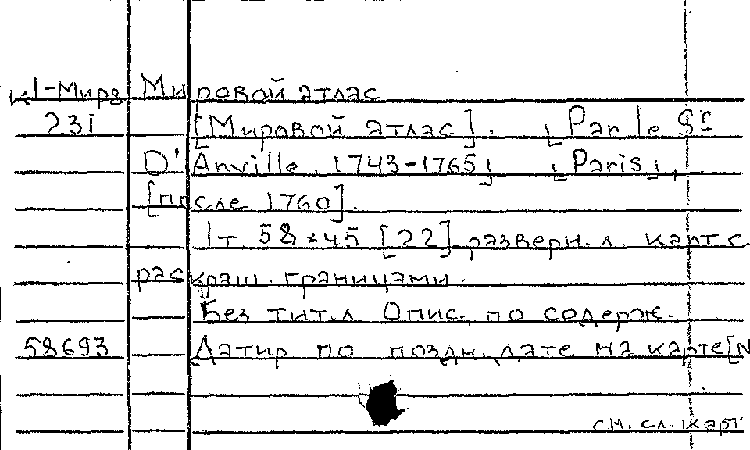 к1-Мирз Мировой атлас
231 [Мировой атлас]. [Par le Sr
D'Anville, 1743-1765] [Paris],
[после 1760].
1т. 58×45 [22] разверн. л. карт с
раскраш. границами.
Без тит.л. Опис. по содерж.
58693 Датир по поздн. дате на карте [N
см. сл. карт